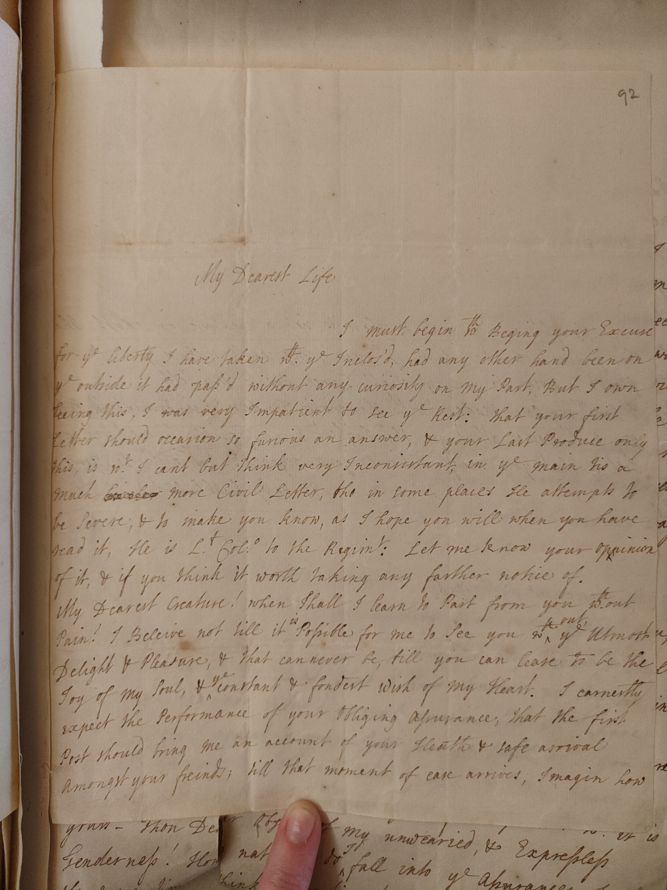 92
My Dearest Life
I must begin wth Beging your Excuse
for ye liberty I have taken wth. ye Inclos'd, had any other hand been on
ye outside it had pass'd without any curiosity on my Part, But I own
seeing this, I was very Impatient to see ye Rest: that your first
Letter should occasion so furious an answer, & your Last Produce only
this, is wt. I cant but think very Inconsistant, in ye main tis a
much more Civil Letter, tho in some places He attempts to
be severe, & to make you know, as I hope you will when you have
read it, He is Lt. Colo. to the Regimt: Let me know your oppinion
of it, & if you think it worth taking any farther notice of.
My Dearest Creature! when shall I learn to Part from you wthout
Pain! I Beleive not till it is Possible for me to See you wthout ye Utmost
Delight & Pleasure, & that can never be, till you can Cease to be the
Joy of my Soul, & ye constant & fondest wish of my Heart. I earnestly
expect the Performance of your Obliging Assurance, that the first
Post should bring me an account of your Health & safe arrival
Amongst your freinds; till that moment of ease arrives, Imagin how
yours - thou my unwearied, & Expressless
Tenderness! How fall into ye